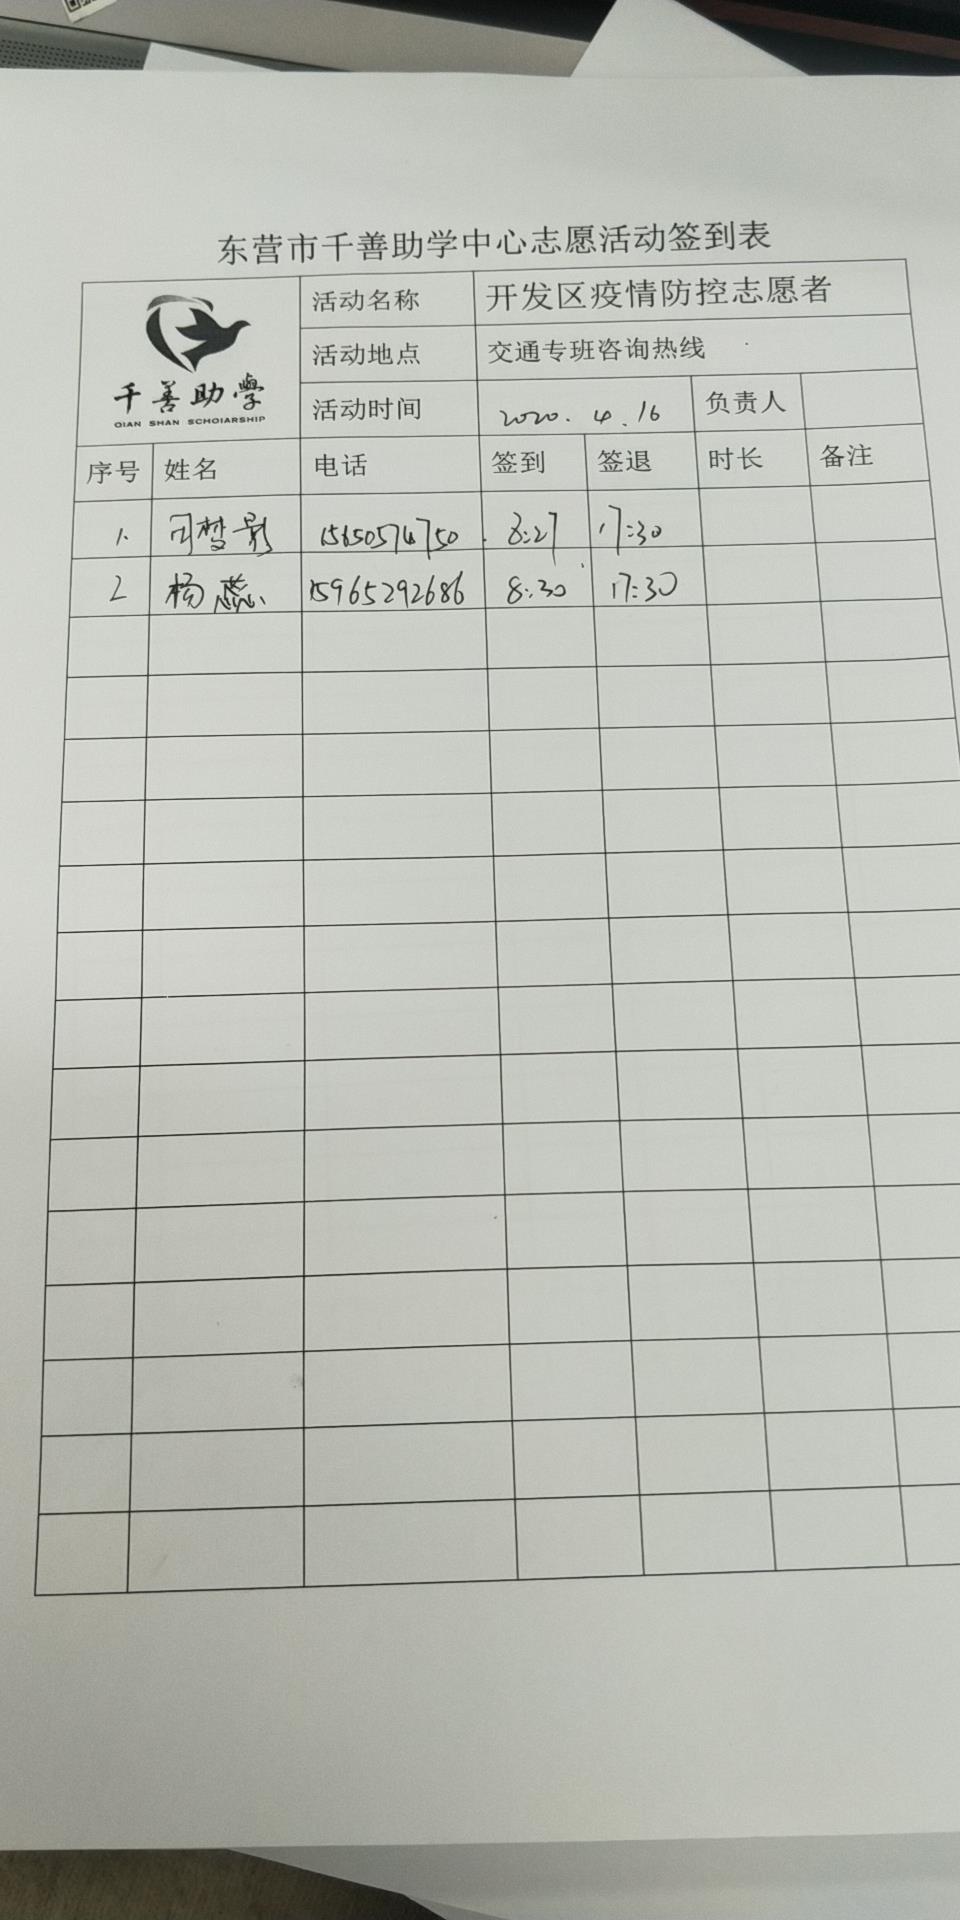 东营市千善助学中心志愿活动签到表
千善助學
QIAN SHAN SCHOIARSHIP
活动名称 开发区疫情防控志愿者
活动地点 交通专班咨询热线
活动时间 2020.4.16 负责人
序号 姓名 电话 签到 签退 时长 备注
1. 司梦影 15650574750 8:27 17:30
2 杨蕊 15965292686 8:30 17:30